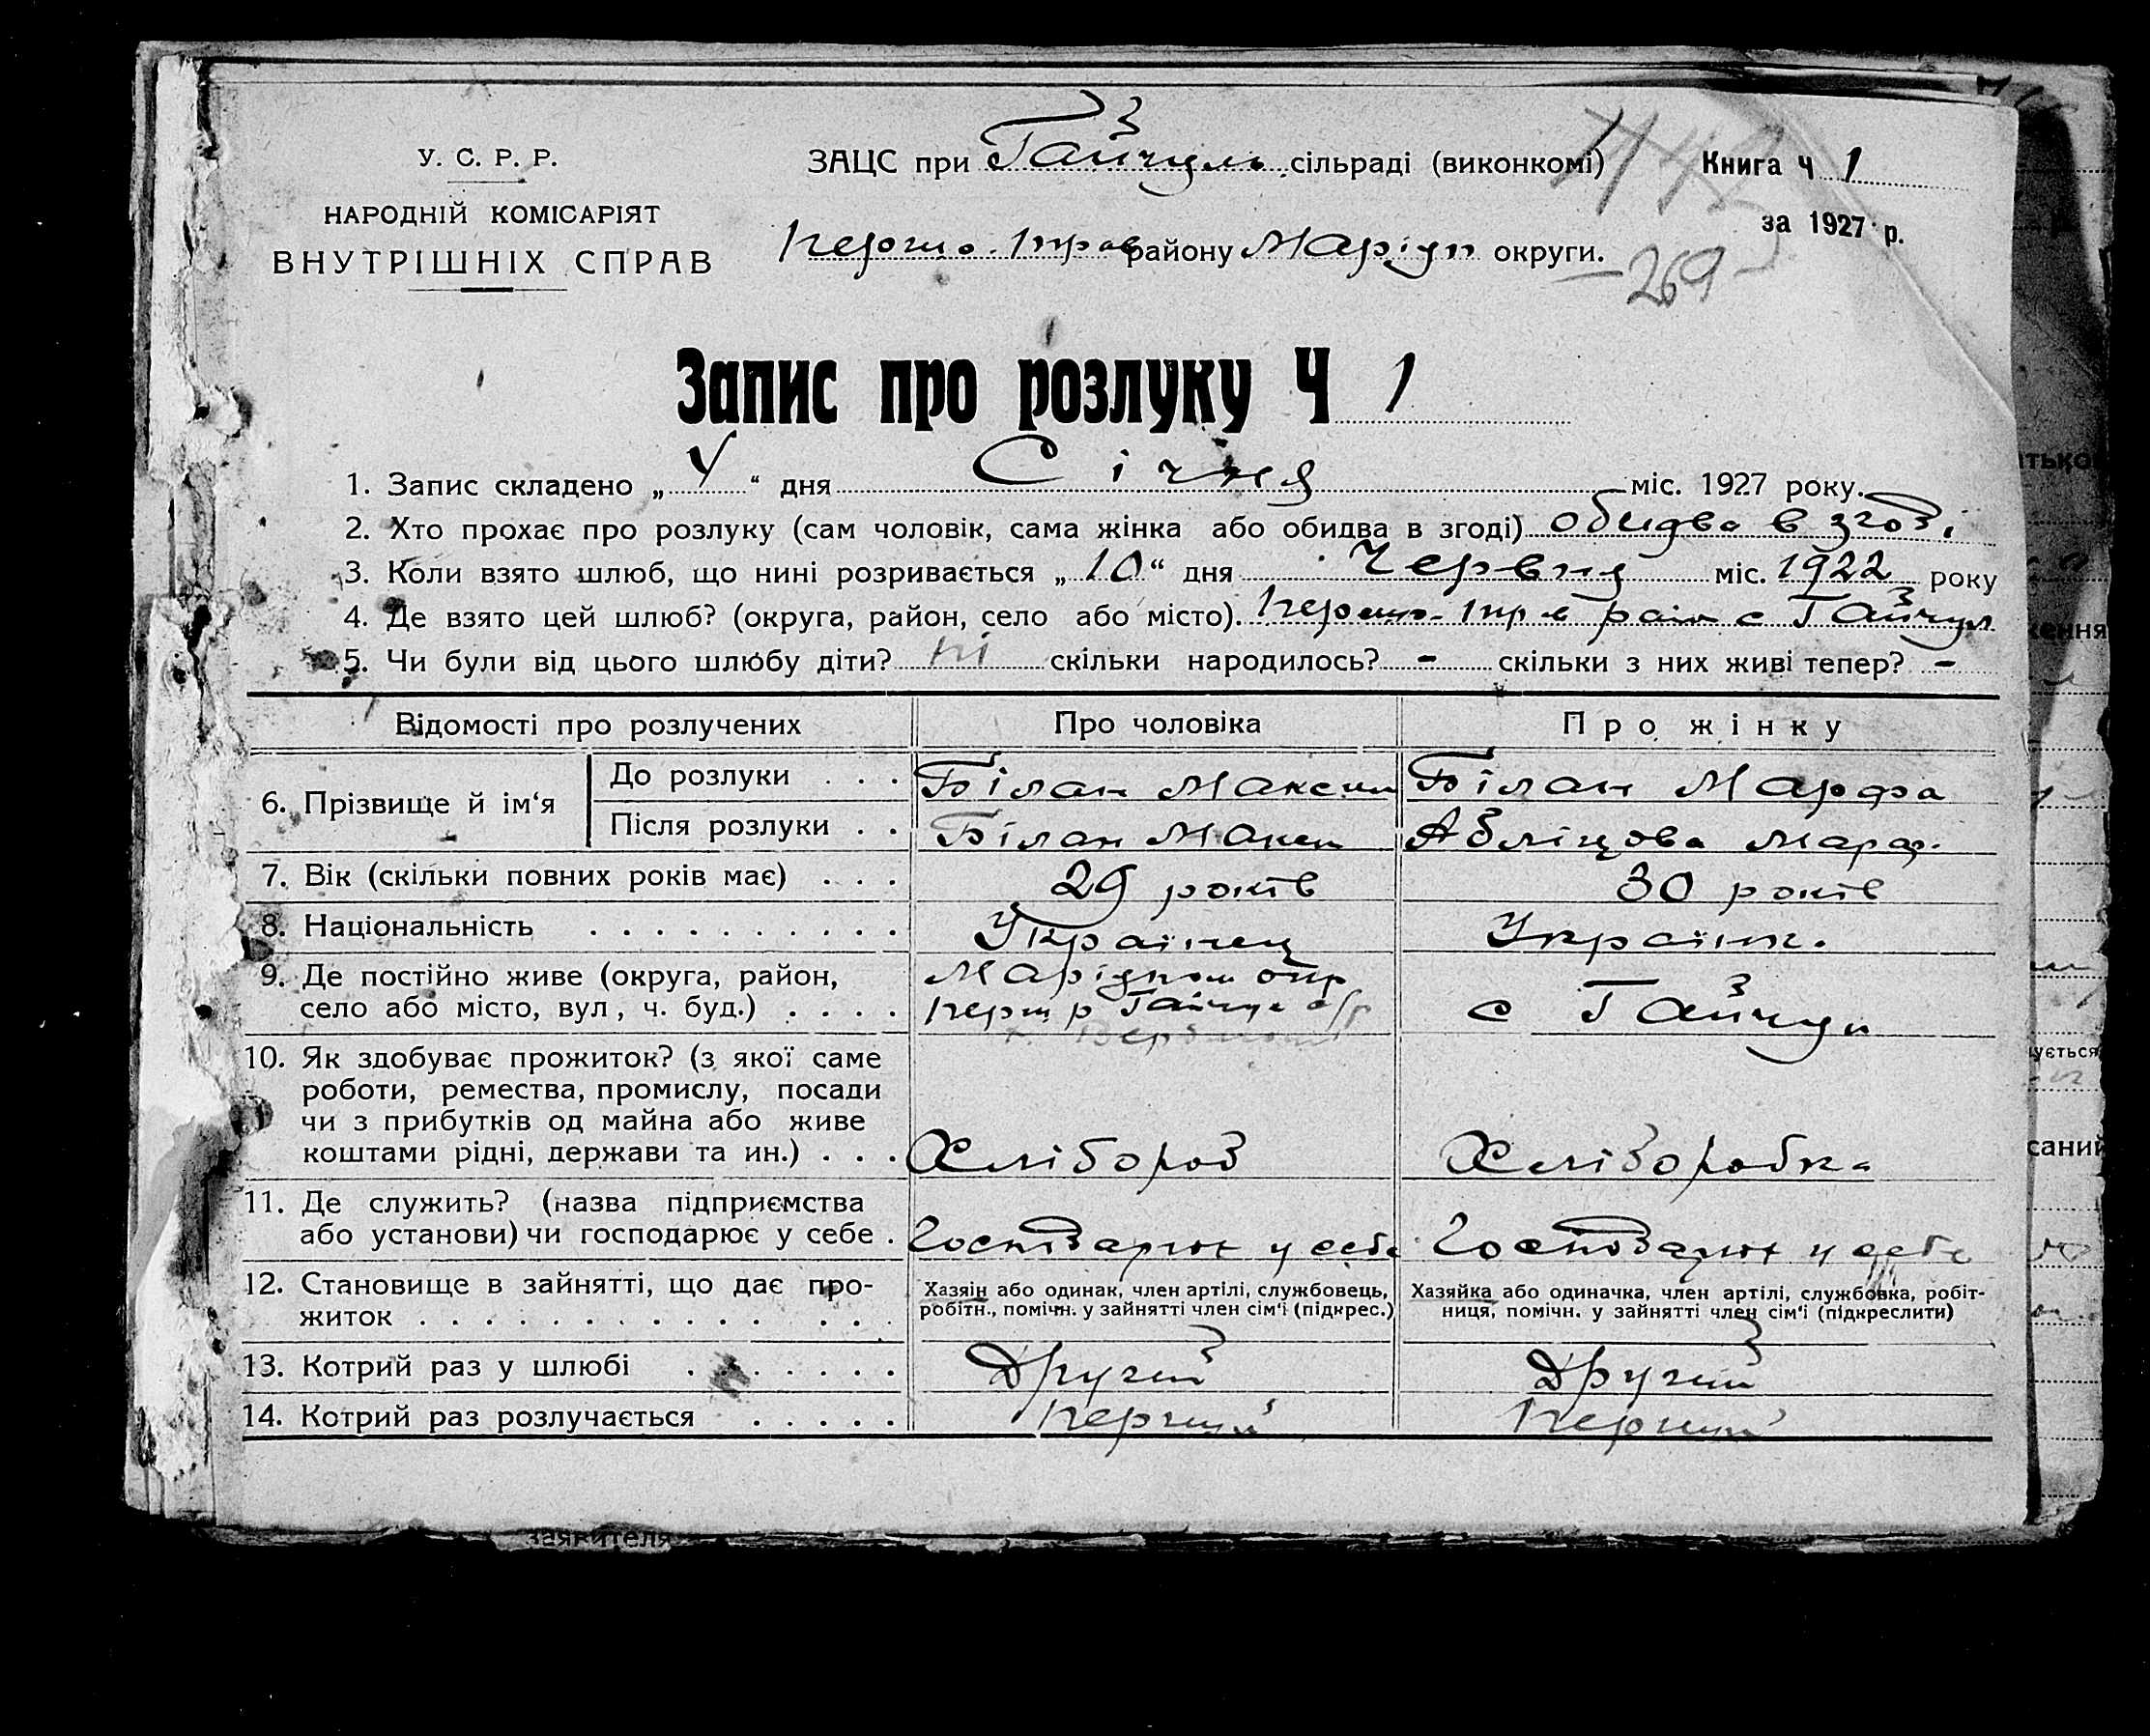 У. С. Р. Р.
НАРОДНІЙ КОМІСАРІЯТ
ВНУТРІШНІХ СПРАВ
ЗАЦС при Гайчуль сільраді (виконкомі)
Першо. Трав району Маріуп округи.
Книга Ч 1
за 1927 р.
269
Запис про розлуку Ч 1
1. Запис складено „ 4 “ дня Січня міс. 1927 року.
2. Хто прохає про розлуку (сам чоловік, сама жінка або обидва в згоді) обидва в згоді
3. Коли взято шлюб, що нині розривається „ 10 “ дня Червня міс. 1922 року
4. Де взято цей шлюб? (округа, район, село або місто). Першо-Трв рай с Гайчул
5. Чи були від цього шлюбу діти? ні скільки народилось? - скільки з них живі тепер? -
Відомості про розлучених Про чоловіка Про жінку
6. Прізвище й ім‘я
До розлуки . . . Білан Максим Білан Марфа
Після розлуки . . Білан Макси Абліцова Марф.
7. Вік (скільки повних років має) . . . 29 років 30 років
8. Національність . . . . . . . . . . Українец Українк.
9. Де постійно живе (округа, район,
село або місто, вул, ч. буд.) . . . .
Маріупол окр
Перш р Гайчул с/р
с Гайчул
10. Як здобуває прожиток? (з якої саме
роботи, ремества, промислу, посади
чи з прибутків од майна або живе
коштами рідні, держави та ин.) . . . Хлібороб Хліборобка
11. Де служить? (назва підприємства
або установи) чи господарює у себе . Господарює у себе Господарює у себе
12. Становище в зайнятті, що дає про-
житок . . . . . . . . . . . . . . .
Хазяїн або одинак, член артілі, службовець,
робітн., помічн. у зайнятті член сім‘ї (підкрес.)
Хазяйка або одиначка, член артілі, службовка, робіт-
ниця, помічн. у зайнятті член сім‘ї (підкреслити)
13. Котрий раз у шлюбі . . . . . . . Другий Другий
14. Котрий раз розлучається . . . . . Перший Перший
заявителя